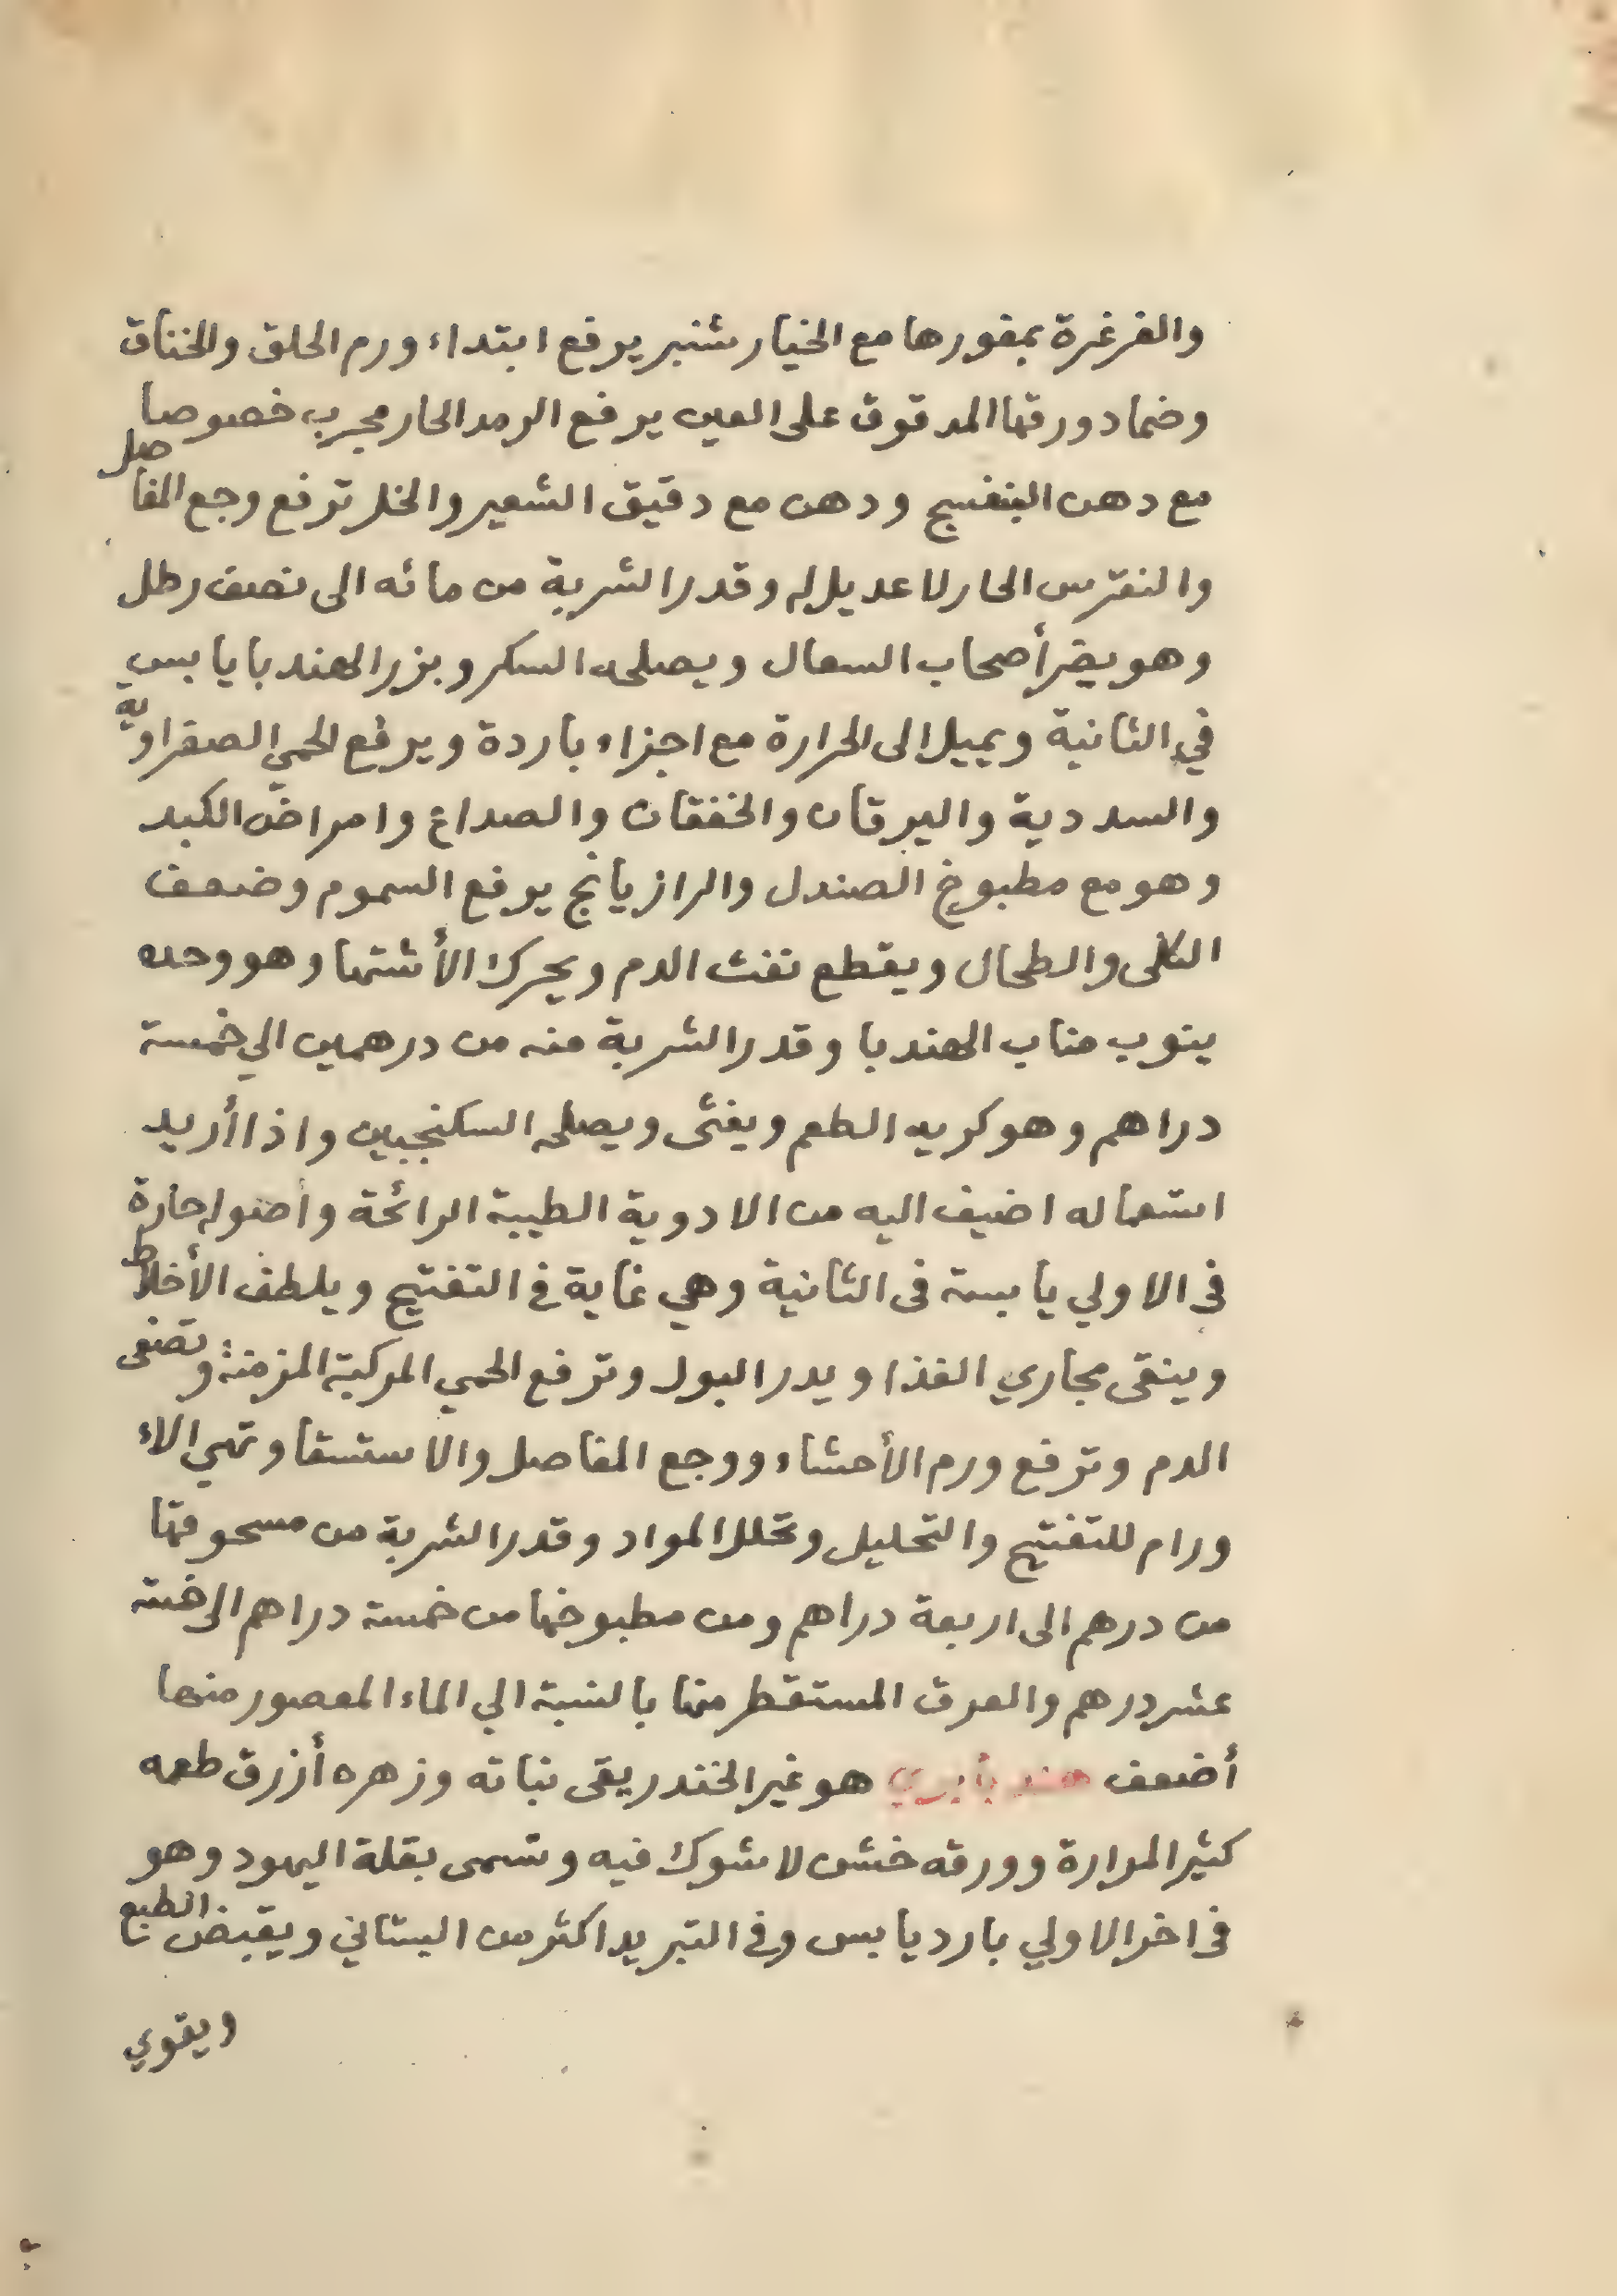 والغرغرة بمغورها مع الخيار شنبر يرفع ابتداء ورم الحلق والخناق
وضماد ورقها المدقوق على العين يرفع الرمد الحار مجرب خصوصا
مع دهن البنفسج ودهن مع دقيق الشعير والخل ترفع وجع المفاصل
والنقرس الحار لا عديل له وقدر الشربة من مائه الى نصف رطل
وهو يضر أصحاب السعال ويصلحه السكر وبزر الهندبا يابس
في الثانية ويميل الى الحرارة مع اجزاء باردة ويرفع الحمي الصفراوية
والسددية واليرقان والخفقان والصداع وامراض الكبد
وهو مع مطبوخ الصندل والرازيانج يرفع السموم وضعف
الكلى والطحال ويقطع نفث الدم ويحرك الأشتها وهو وحده
ينوب مناب الهندبا وقدر الشربة منه من درهمين الي خمسة
دراهم وهو كريه الطعم ويغثى ويصلحه السكنجبين واذا أريد
استعماله اضيف اليه من الادوية الطيبة الرائحة واصوله حارة
فى الاولي يابسة فى الثانية وهي غاية في التفتيح ويلطف الأخلاط
وينقى مجاري الغذا ويدر البول وترفع الحمي المركبة المزمنة وتصفى
الدم وترفع ورم الأحشاء ووجع المفاصل والاستسقا وتهي الاء
ورام للتفتيح والتحليل وتحلل المواد وقدر الشربة من مسحوقها
من درهم الى اربعة دراهم ومن مطبوخها من خمسة دراهم الى خمسة
عشر درهم والعرق المستقطر منها بالنسبة الي الماء المعصور منها
أضعف هندبأ بري هو غير الخندريقى نباته وزهره أزرق طعمه
كثير المرارة وورقه خشن لا شوك فيه وتسمى بقلة اليهود وهو
فى اخر الاولي بارد يابس وفى التبريد اكثر من البستاني ويقبض الطبع
ويقوي